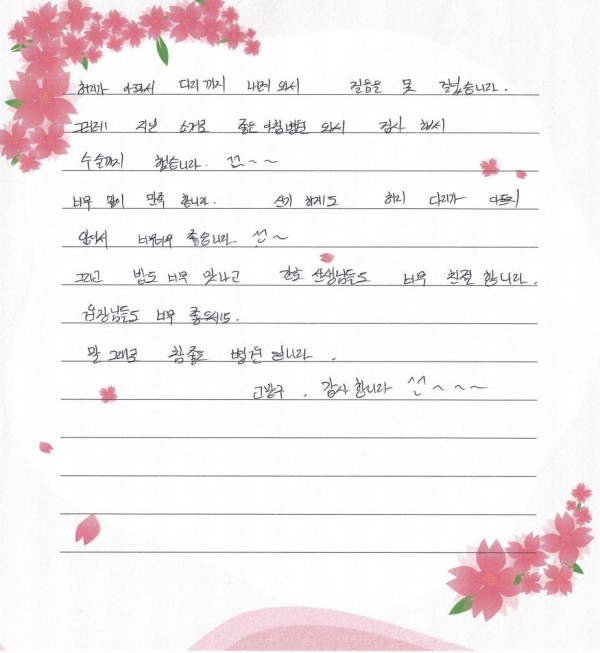 허리가 아파서 다리까지 내려 와서 걸음을 못 걸었습니다.
그래서 지인 소개로 좋은 아침병원 와서 검사 해서
수술까지 했습니다. ^^~~
너무 많이 만족 합니다. 신기 하게도 허리 다리가 아프지
않아서 너무너무 좋습니다 ^^~
그리고 밥도 너무 맛나고 간호 선생님들도 너무 친절 합니다.
원장님들도 너무 좋으세요.
말 그대로 참좋은 병원 입니다.
감사 합니다 ^^~~~